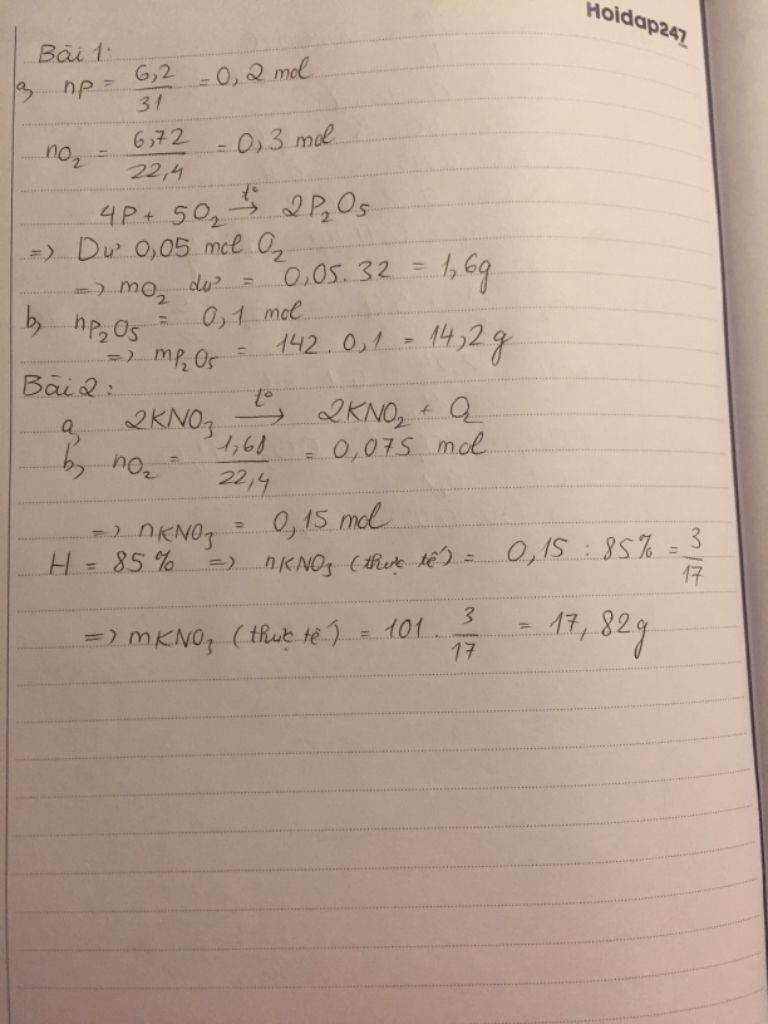 Hoidap247
Bài 1:
a, nP = 6,2/31 = 0,2 mol
nO₂ = 6,72/22,4 = 0,3 mol
4P + 5O₂ →(t°) 2P₂O₅
=> Dư 0,05 mol O₂
=> mO₂ dư = 0,05.32 = 1,6g
b, nP₂O₅ = 0,1 mol
=> mP₂O₅ = 142.0,1 = 14,2g
Bài 2:
a, 2KNO₃ →(t°) 2KNO₂ + O₂
b, nO₂ = 1,68/22,4 = 0,075 mol
=> nKNO₃ = 0,15 mol
H = 85% => nKNO₃ (thực tế) = 0,15 : 85% = 3/17
=> mKNO₃ (thực tế) = 101. 3/17 = 17,82g